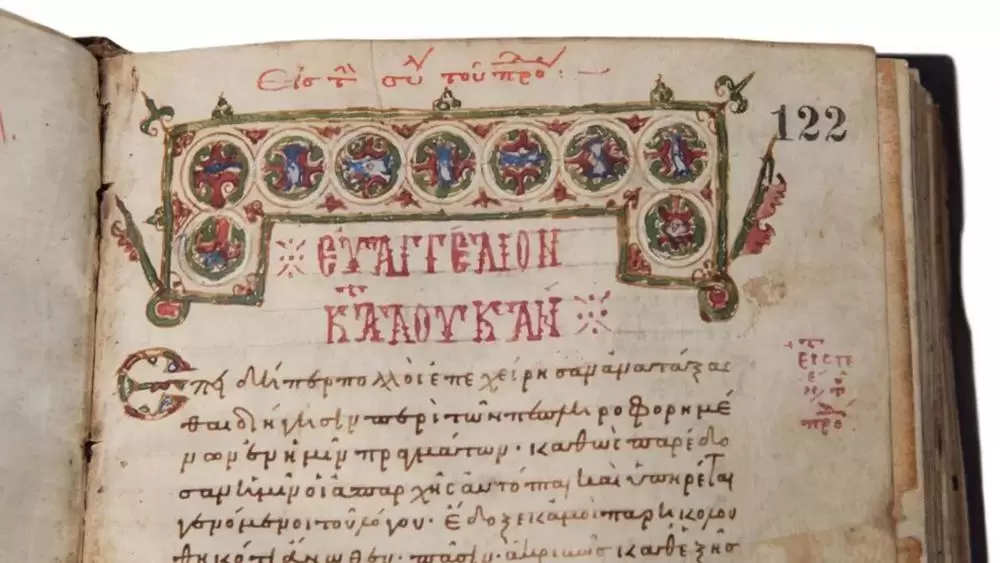 Εἰς τ συ τοῦ προ : —
122
ΕΥΑΓΓΕΛΙΟΝ
ΚΑΤΑ ΛΟΥΚΑΝ
Ἐπειδήπερ πολλοὶ ἐπεχείρησαν ἀνατάξασ
θαι διήγησιν περὶ τῶν πεπληροφορημέ
νων ἐν ἡμῖν πραγμάτων· καθὼς παρέδο
σαν ἡμῖν οἱ ἀπαρχῆς αὐτόπται καὶ ὑπηρέται
γενόμενοι τοῦ λόγου· ἔδοξε κἀμοὶ παρηκολου
θηκότι ἄνωθεν· πᾶσιν ἀκριβῶς καθεξῆς